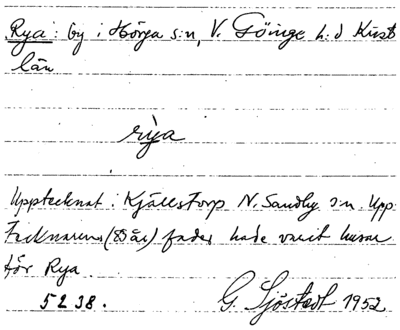 Rya: by i Hörja s:n, V. Göinge h:d Krist
län
rỳa
Upptecknat i Kjällstorp N. Sandby s:n. Upp-
tecknarens (85 år) fader hade varit husar
för Rya.
5238. G. Sjöstedt 1952.